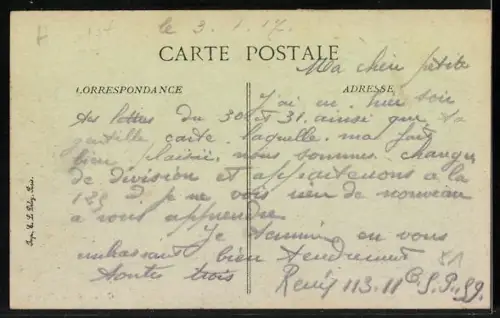 le 3. 1. 17.
CARTE POSTALE
Ma chère petite
CORRESPONDANCE
ADRESSE
J'ai eu hier soir
tes lettres du 30 et 31. ainsi que ta
gentille carte laquelle ma fait
bien plaisir, nous sommes changer
de division et appartenons a la
129 D je ne vois rien de nouveau
a vous apprendre
Je termine en vous
embrassant bien tendrement
toutes trois
René 113. 11 C S.P. 59